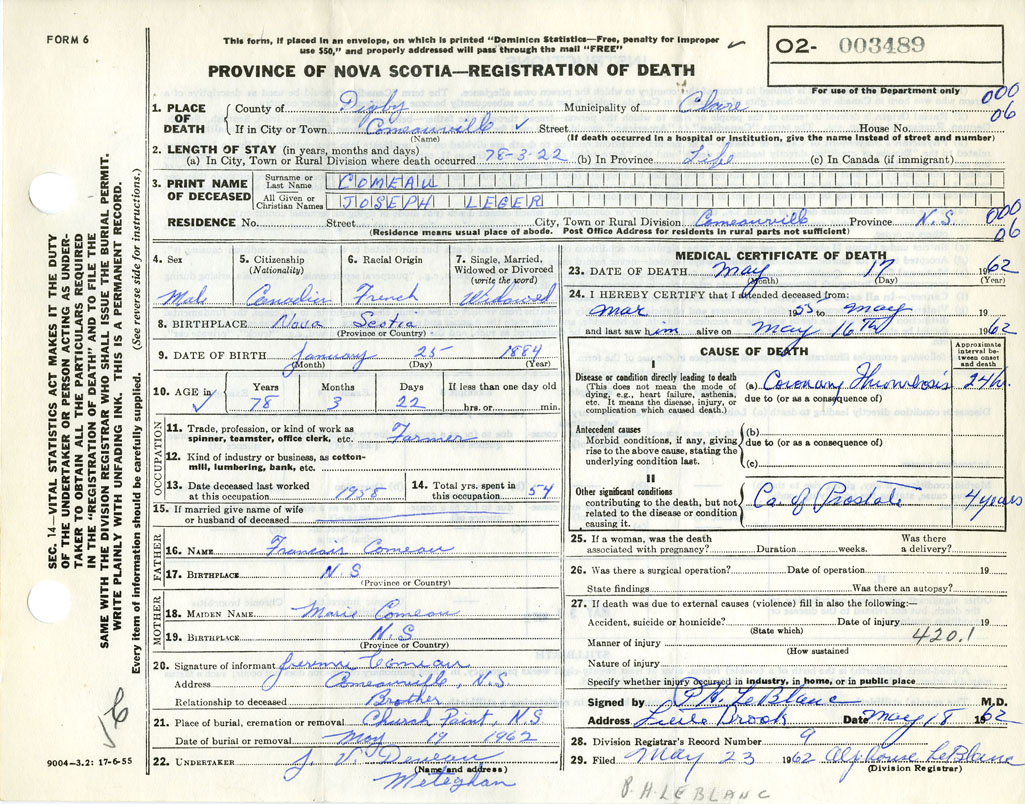 FORM 6
This form, if placed in an envelope, on which is printed "Dominion Statistics—Free, penalty for improper
use $50," and properly addressed will pass through the mail "FREE"
PROVINCE OF NOVA SCOTIA—REGISTRATION OF DEATH
02- 003489
For use of the Department only
000
06
1. PLACE OF DEATH
County of Digby Municipality of Clare
If in City or Town Comeauville ✓ Street House No.
(Name) (If death occurred in a hospital or institution, give the name instead of street and number)
2. LENGTH OF STAY (in years, months and days)
(a) In City, Town or Rural Division where death occurred 78-3-22 (b) In Province Life (c) In Canada (if immigrant)
3. PRINT NAME OF DECEASED
Surname or Last Name COMEAU
All Given or Christian Names JOSEPH LEGER
RESIDENCE No. Street City, Town or Rural Division Comeauville Province N.S.
000
06
(Residence means usual place of abode. Post Office Address for residents in rural parts not sufficient)
4. Sex
Male
5. Citizenship
(Nationality)
Canadian
6. Racial Origin
French
7. Single, Married,
Widowed or Divorced
(write the word)
Widowed
8. BIRTHPLACE Nova Scotia
(Province or Country)
9. DATE OF BIRTH January 25 1884
(Month) (Day) (Year)
10. AGE in
Years Months Days If less than one day old
✓ 78 3 22 hrs. or min.
OCCUPATION
11. Trade, profession, or kind of work as
spinner, teamster, office clerk, etc. Farmer
12. Kind of industry or business, as cotton-
mill, lumbering, bank, etc.
13. Date deceased last worked
at this occupation 1958
14. Total yrs. spent in
this occupation 54
15. If married give name of wife
or husband of deceased
FATHER
16. NAME Francois Comeau
17. BIRTHPLACE N.S
(Province or Country)
MOTHER
18. MAIDEN NAME Marie Comeau
19. BIRTHPLACE N.S.
(Province or Country)
20. Signature of informant Comeau
Address Comeauville, N.S.
Relationship to deceased Brother
21. Place of burial, cremation or removal Church Point, N.S
Date of burial or removal May 19 1962
22. UNDERTAKER J. V.
(Name and address)
Meteghan
MEDICAL CERTIFICATE OF DEATH
23. DATE OF DEATH May 17 1962
(Month) (Day) (Year)
24. I HEREBY CERTIFY that I attended deceased from:
Mar 1955 to May 19
and last saw him alive on May 16th 1962
CAUSE OF DEATH
Approximate
interval be-
tween onset
and death
I
Disease or condition directly leading to death
(This does not mean the mode of
dying, e.g., heart failure, asthenia,
etc. It means the disease, injury, or
complication which caused death.)
(a) Coronary Thrombosis 24h.
due to (or as a consequence of)
Antecedent causes
Morbid conditions, if any, giving
rise to the above cause, stating the
underlying condition last.
(b)
due to (or as a consequence of)
(c)
II
Other significant conditions
contributing to the death, but not
related to the disease or condition
causing it.
Ca. of Prostate 4 years
25. If a woman, was the death
associated with pregnancy? Duration weeks. Was there
a delivery?
26. Was there a surgical operation? Date of operation 19
State findings Was there an autopsy?
27. If death was due to external causes (violence) fill in also the following:—
Accident, suicide or homicide? Date of injury 19
(State which)
420.1
Manner of injury
(How sustained
Nature of injury
Specify whether injury occured in industry, in home, or in public place
Signed by P.H. LeBlanc M.D.
Address Little Brook Date May 18 1962
28. Division Registrar's Record Number 9
29. Filed May 23 1962 Alphonse LeBlanc
(Division Registrar)
P.H. LEBLANC
SEC. 14—VITAL STATISTICS ACT MAKES IT THE DUTY
OF THE UNDERTAKER OR PERSON ACTING AS UNDER-
TAKER TO OBTAIN ALL THE PARTICULARS REQUIRED
IN THE "REGISTRATION OF DEATH" AND TO FILE THE
SAME WITH THE DIVISION REGISTRAR WHO SHALL ISSUE THE BURIAL PERMIT.
WRITE PLAINLY WITH UNFADING INK. THIS IS A PERMANENT RECORD.
Every item of information should be carefully supplied. (See reverse side for instructions.)
9004—3.2: 17-6-55